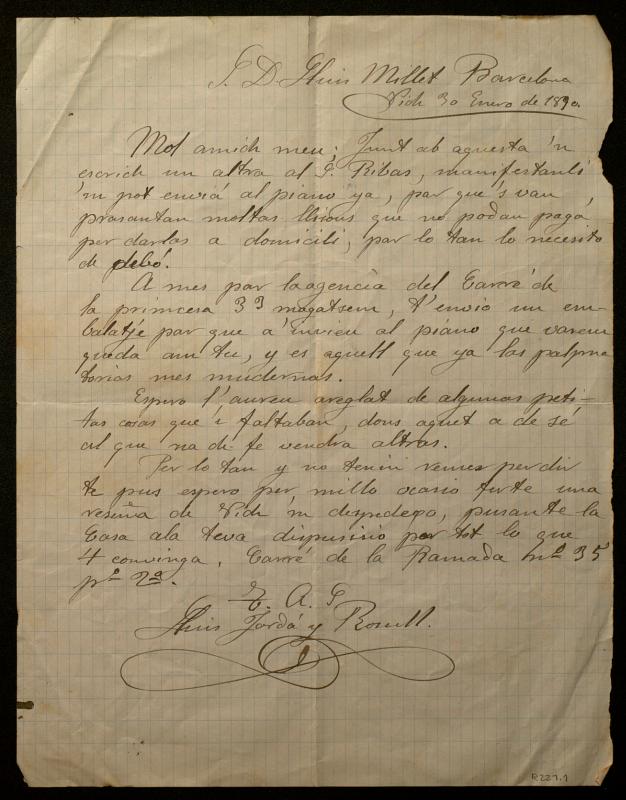 S. D. Lluis Millet Barcelona
Vich 30 Enero de 1890.
Mol amich meu; Junt ab aquesta 'n
escrich un altra al S. Ribas, manifestanli
'm pot enviá al piano ya, par que 's van
prasantan moltas llisons que no podan pagá
per darlas a domicili, par lo tan lo necesito
de debó.
A mes par la agencia del Carré de
la princesa 33 magatsem, t'envio un em-
balatje par que a' invieu al piano que varem
quedá am tu, y es aquell que ya las palma
torias mes mudernas.
Espero l'aureu areglat de algunas peti-
tas cosas que i faltaban, dons aquet a de sé
al que na di fe vendra altras.
Per lo tan y no tenin res mes per dir
te pus espero per millo ocasio ferte una
reseña de Vich 'm despedego, pusante la
Casa a la teva disposisio per tot lo que
t convinga. Carré de la Ramada nº 35
pº 2ª.
T. A. S
Lluis Jordá y Rosell.
R221.1